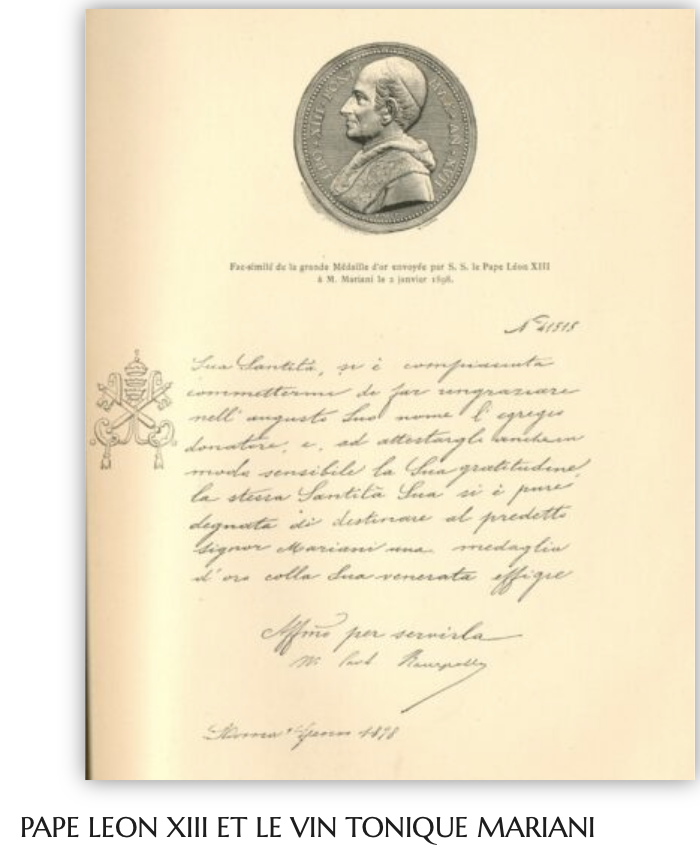 LEO · XIII · PONT MAX · AN · XVII
Fac-similé de la grande Médaille d'or envoyée par S. S. le Pape Léon XIII
à M. Mariani le 2 janvier 1898.
Sua Santità, si è compiaciuta
commettermi di far ringraziare
nell' augusto Suo nome l' egregio
donatore, e, ad attestargli anche in
modo sensibile la Sua gratitudine,
la stessa Santità Sua si è pure
degnata di destinare al predetto
Signor Mariani una medaglia
d'oro colla Sua venerata effigie
Affmo per servirla
M. Card Rampolla
Roma 1898
PAPE LEON XIII ET LE VIN TONIQUE MARIANI